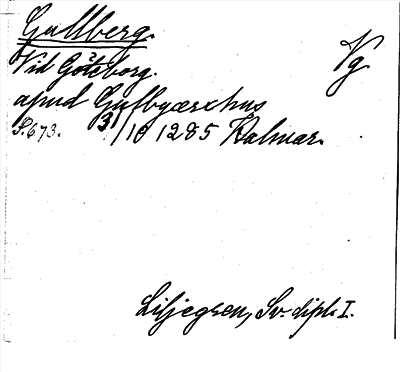 Gullberg. Vg
Vid Göteborg.
apud Gulbyærxhus
S. 673. 31/10 1285 Kalmar.
Liljegren, Sv. dipl. I.